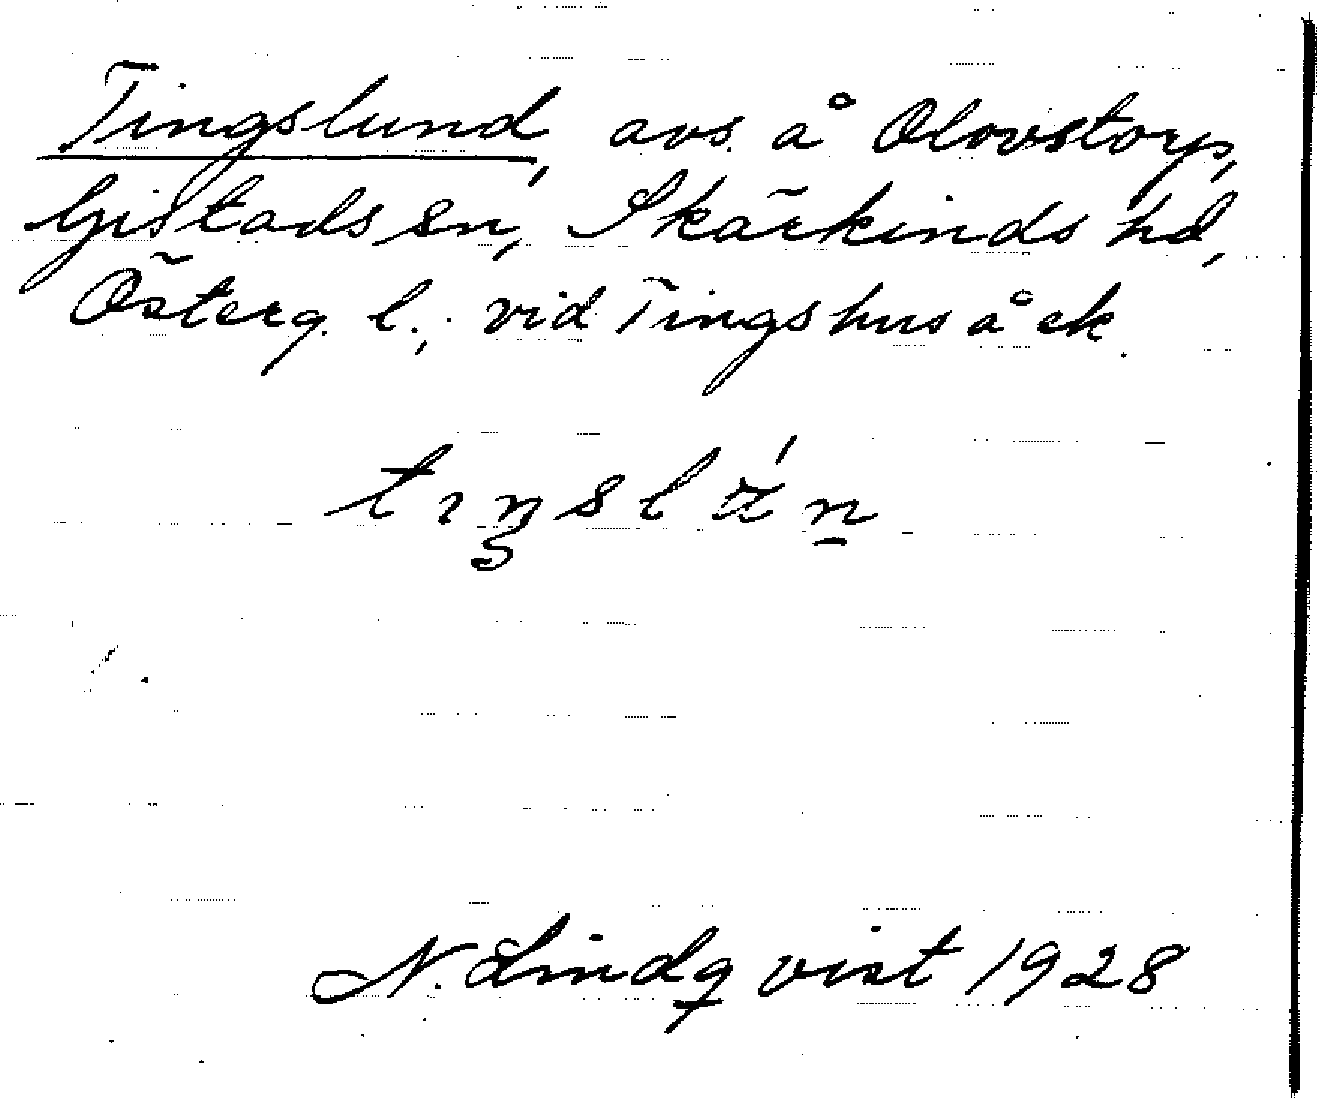 Tingslund, avs. å Olovstorp,
Gistads sn, Skärkinds hd,
Österg. l.; vid Tingshus å ek.
N. Lindqvist 1928